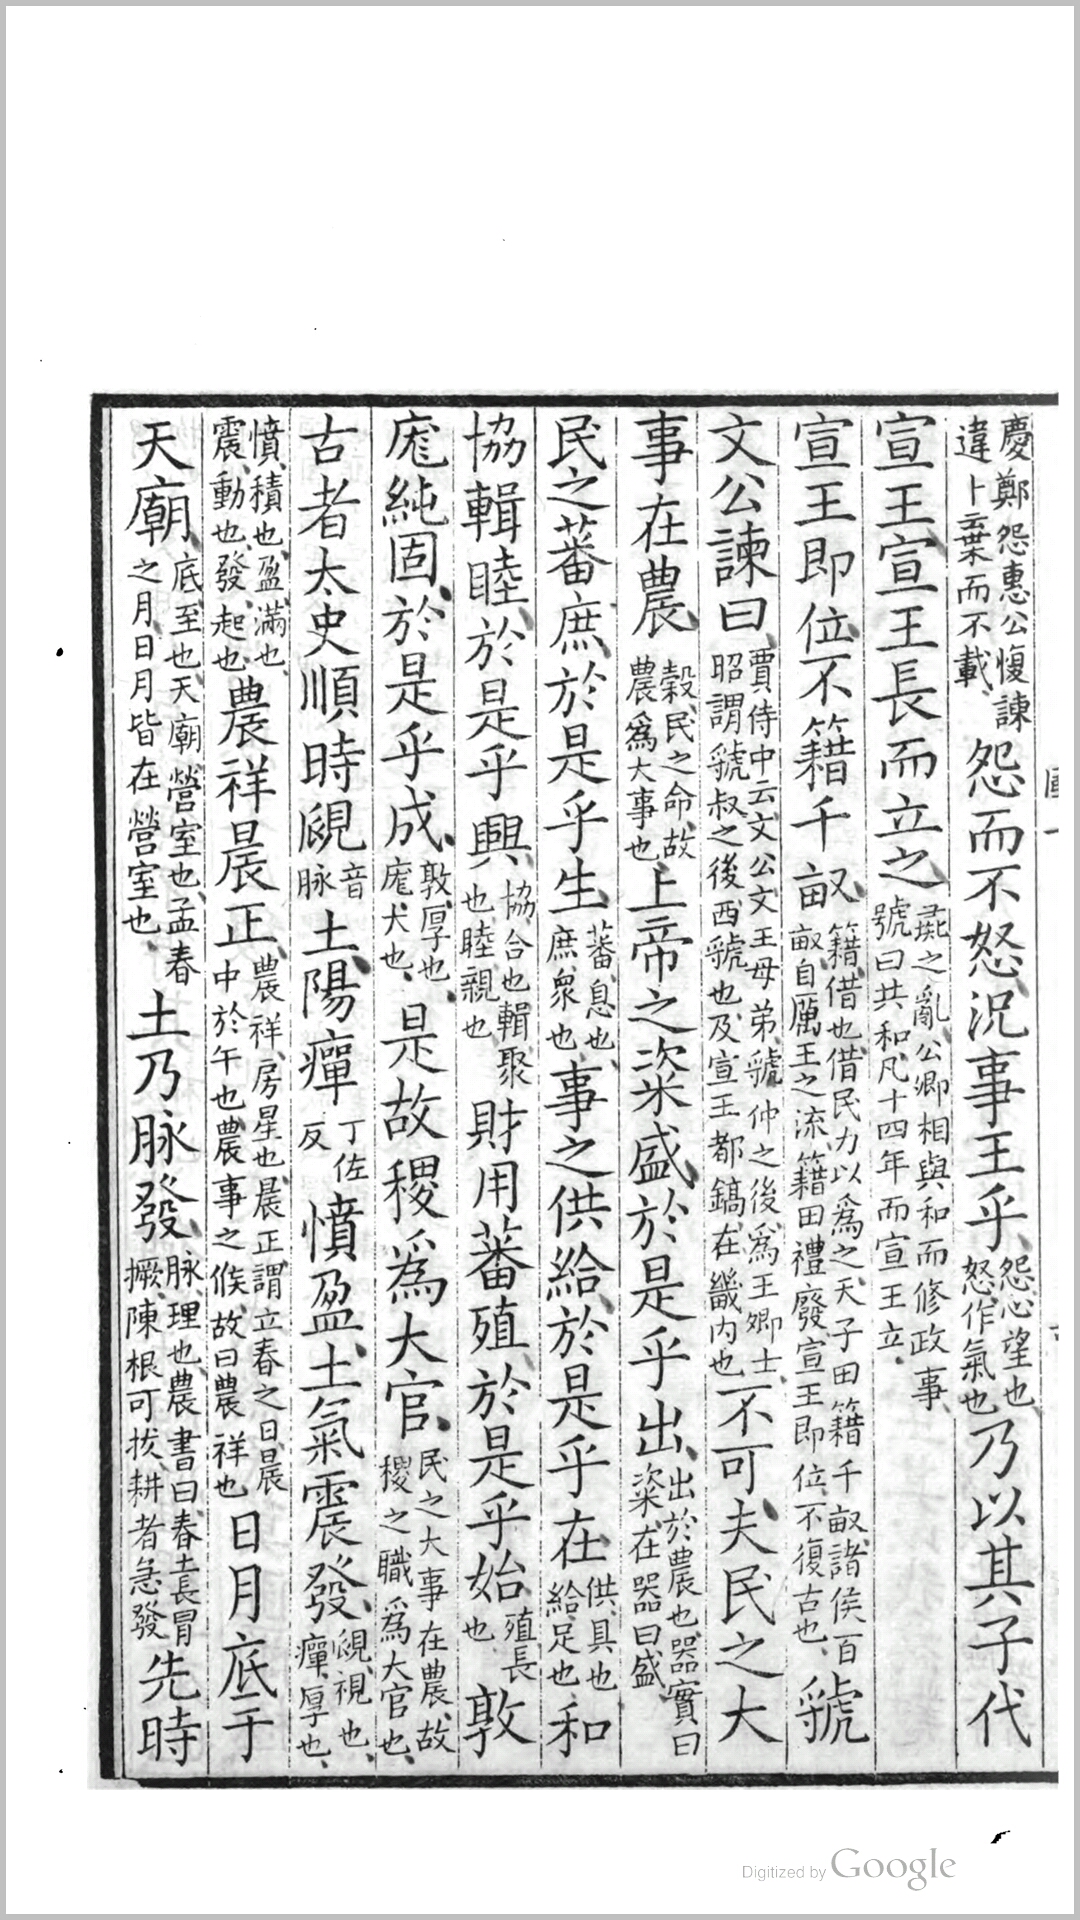 慶鄭怨惠公愎諫違卜云棄而不載怨而不怒況事王乎怨心望也怒作氣也乃以其子代
宣王宣王長而立之彘之亂公卿相與和而修政事號曰共和凡十四年而宣王立
宣王即位不籍千畝籍借也借民力以爲之天子田籍千畝諸侯百畝自厲王之流籍田禮廢宣王即位不復古也虢
文公諫曰賈侍中云文公文王母弟虢仲之後爲王卿士昭謂虢叔之後西虢也及宣王都鎬在畿內也不可夫民之大
事在農穀民之命故農爲大事也上帝之粢盛於是乎出出於農也器實曰粢在器曰盛
民之蕃庶於是乎生蕃息也庶衆也事之供給於是乎在供具也給足也和
協輯睦於是乎興協合也輯聚也睦親也財用蕃殖於是乎始殖長也敦
庬純固於是乎成敦厚也庬犬也是故稷爲大官民之大事在農故稷之職爲大官也
古者太史順時覛音脉土陽癉丁佐反憤盈土氣震發覛視也癉厚也
憤積也盈滿也震動也發起也農祥晨正農祥房星也晨正謂立春之日晨中於午也農事之候故曰農祥也日月底于
天廟底至也天廟營室也孟春之月日月皆在營室也土乃脉發脉理也農書曰春土長冒撅陳根可拔耕者急發先時
Digitized by Google